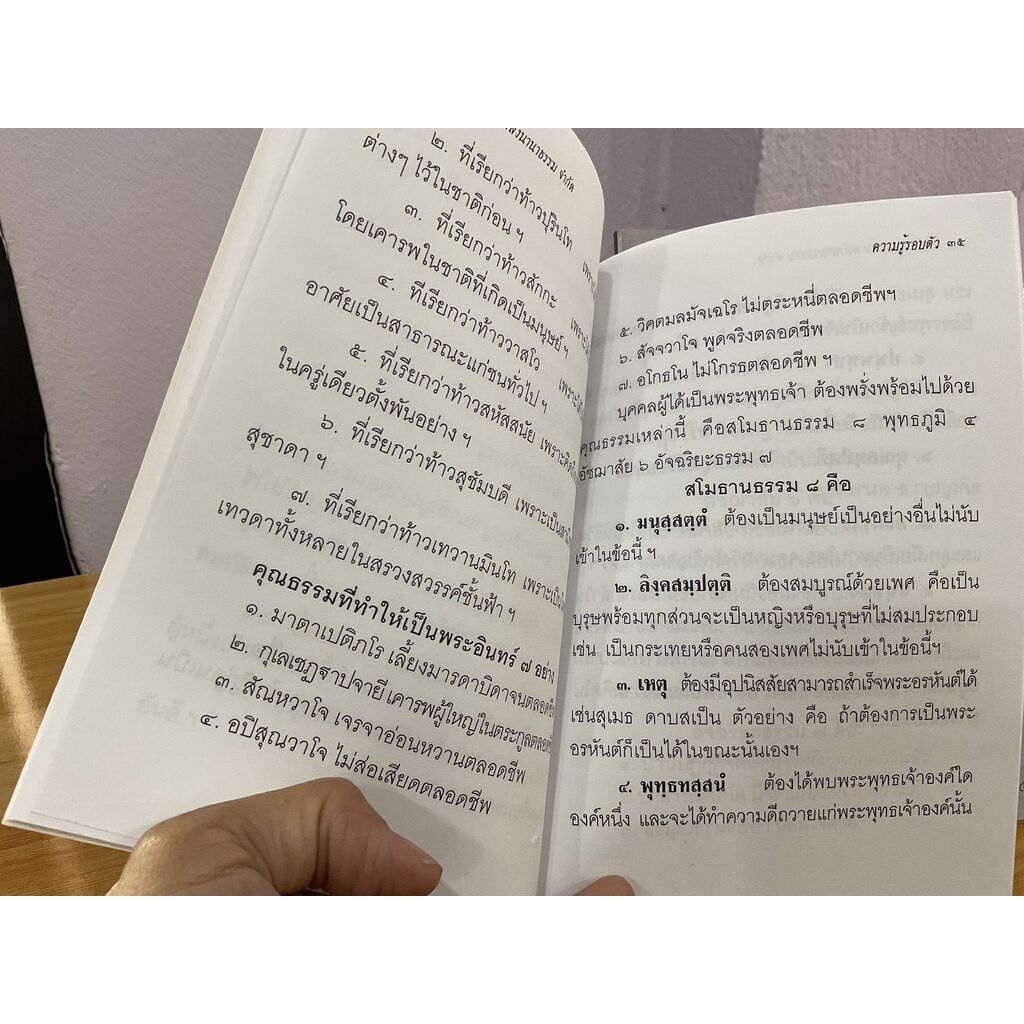 ต่างๆ ไว้ในชาติก่อน ฯ
๒. ที่เรียกว่าท้าวปุรินโท
๓. ที่เรียกว่าท้าวสักกะ
โดยเคารพในชาติที่เกิดเป็นมนุษย์ ฯ
๔. ทีเรียกว่าท้าววาสโว
อาศัยเป็นสาธารณะแก่ชนทั่วไป ฯ
๕. ที่เรียกว่าท้าวสหัสสนัย เพราะคิด
ในครู่เดียวตั้งพันอย่าง ฯ
๖. ที่เรียกว่าท้าวสุชัมบดี เพราะเป็น
สุชาดา ฯ
๗. ที่เรียกว่าท้าวเทวานมินโท เพราะเป็น
เทวดาทั้งหลายในสรวงสวรรค์ชั้นฟ้า ฯ
คุณธรรมที่ทำให้เป็นพระอินทร์ ๗ อย่าง
๑. มาตาเปติภโร เลี้ยงมารดาบิดาจนตลอด
๒. กุเลเชฏฐาปจายี เคารพผู้ใหญ่ในตระกูล
๓. สัณหวาโจ เจรจาอ่อนหวานตลอดชีพ
๔. อปิสุณวาโจ ไม่ส่อเสียดตลอดชีพ
ความรู้รอบตัว ๓๕
๕. วิคตมลมัจเฉโร ไม่ตระหนี่ตลอดชีพฯ
๖. สัจจวาโจ พูดจริงตลอดชีพ
๗. อโกธโน ไม่โกรธตลอดชีพ ฯ
บุคคลผู้ได้เป็นพระพุทธเจ้า ต้องพรั่งพร้อมไปด้วย
คุณธรรมเหล่านี้ คือสโมธานธรรม ๘ พุทธภูมิ ๔
อัชฌาสัย ๖ อัจฉริยะธรรม ๗
สโมธานธรรม ๘ คือ
๑. มนุสฺสตฺตํ ต้องเป็นมนุษย์เป็นอย่างอื่นไม่นับ
เข้าในข้อนี้ ฯ
๒. ลิงฺคสมฺปตฺติ ต้องสมบูรณ์ด้วยเพศ คือเป็น
บุรุษพร้อมทุกส่วนจะเป็นหญิงหรือบุรุษที่ไม่สมประกอบ
เช่น เป็นกระเทยหรือคนสองเพศไม่นับเข้าในข้อนี้ฯ
๓. เหตุ ต้องมีอุปนิสสัยสามารถสำเร็จพระอรหันต์ได้
เช่นสุเมธ ดาบสเป็น ตัวอย่าง คือ ถ้าต้องการเป็นพระ
อรหันต์ก็เป็นได้ในขณะนั้นเองฯ
๔. พุทฺธทสฺสนํ ต้องได้พบพระพุทธเจ้าองค์ใด
องค์หนึ่ง และจะได้ทำความดีถวายแก่พระพุทธเจ้าองค์นั้น